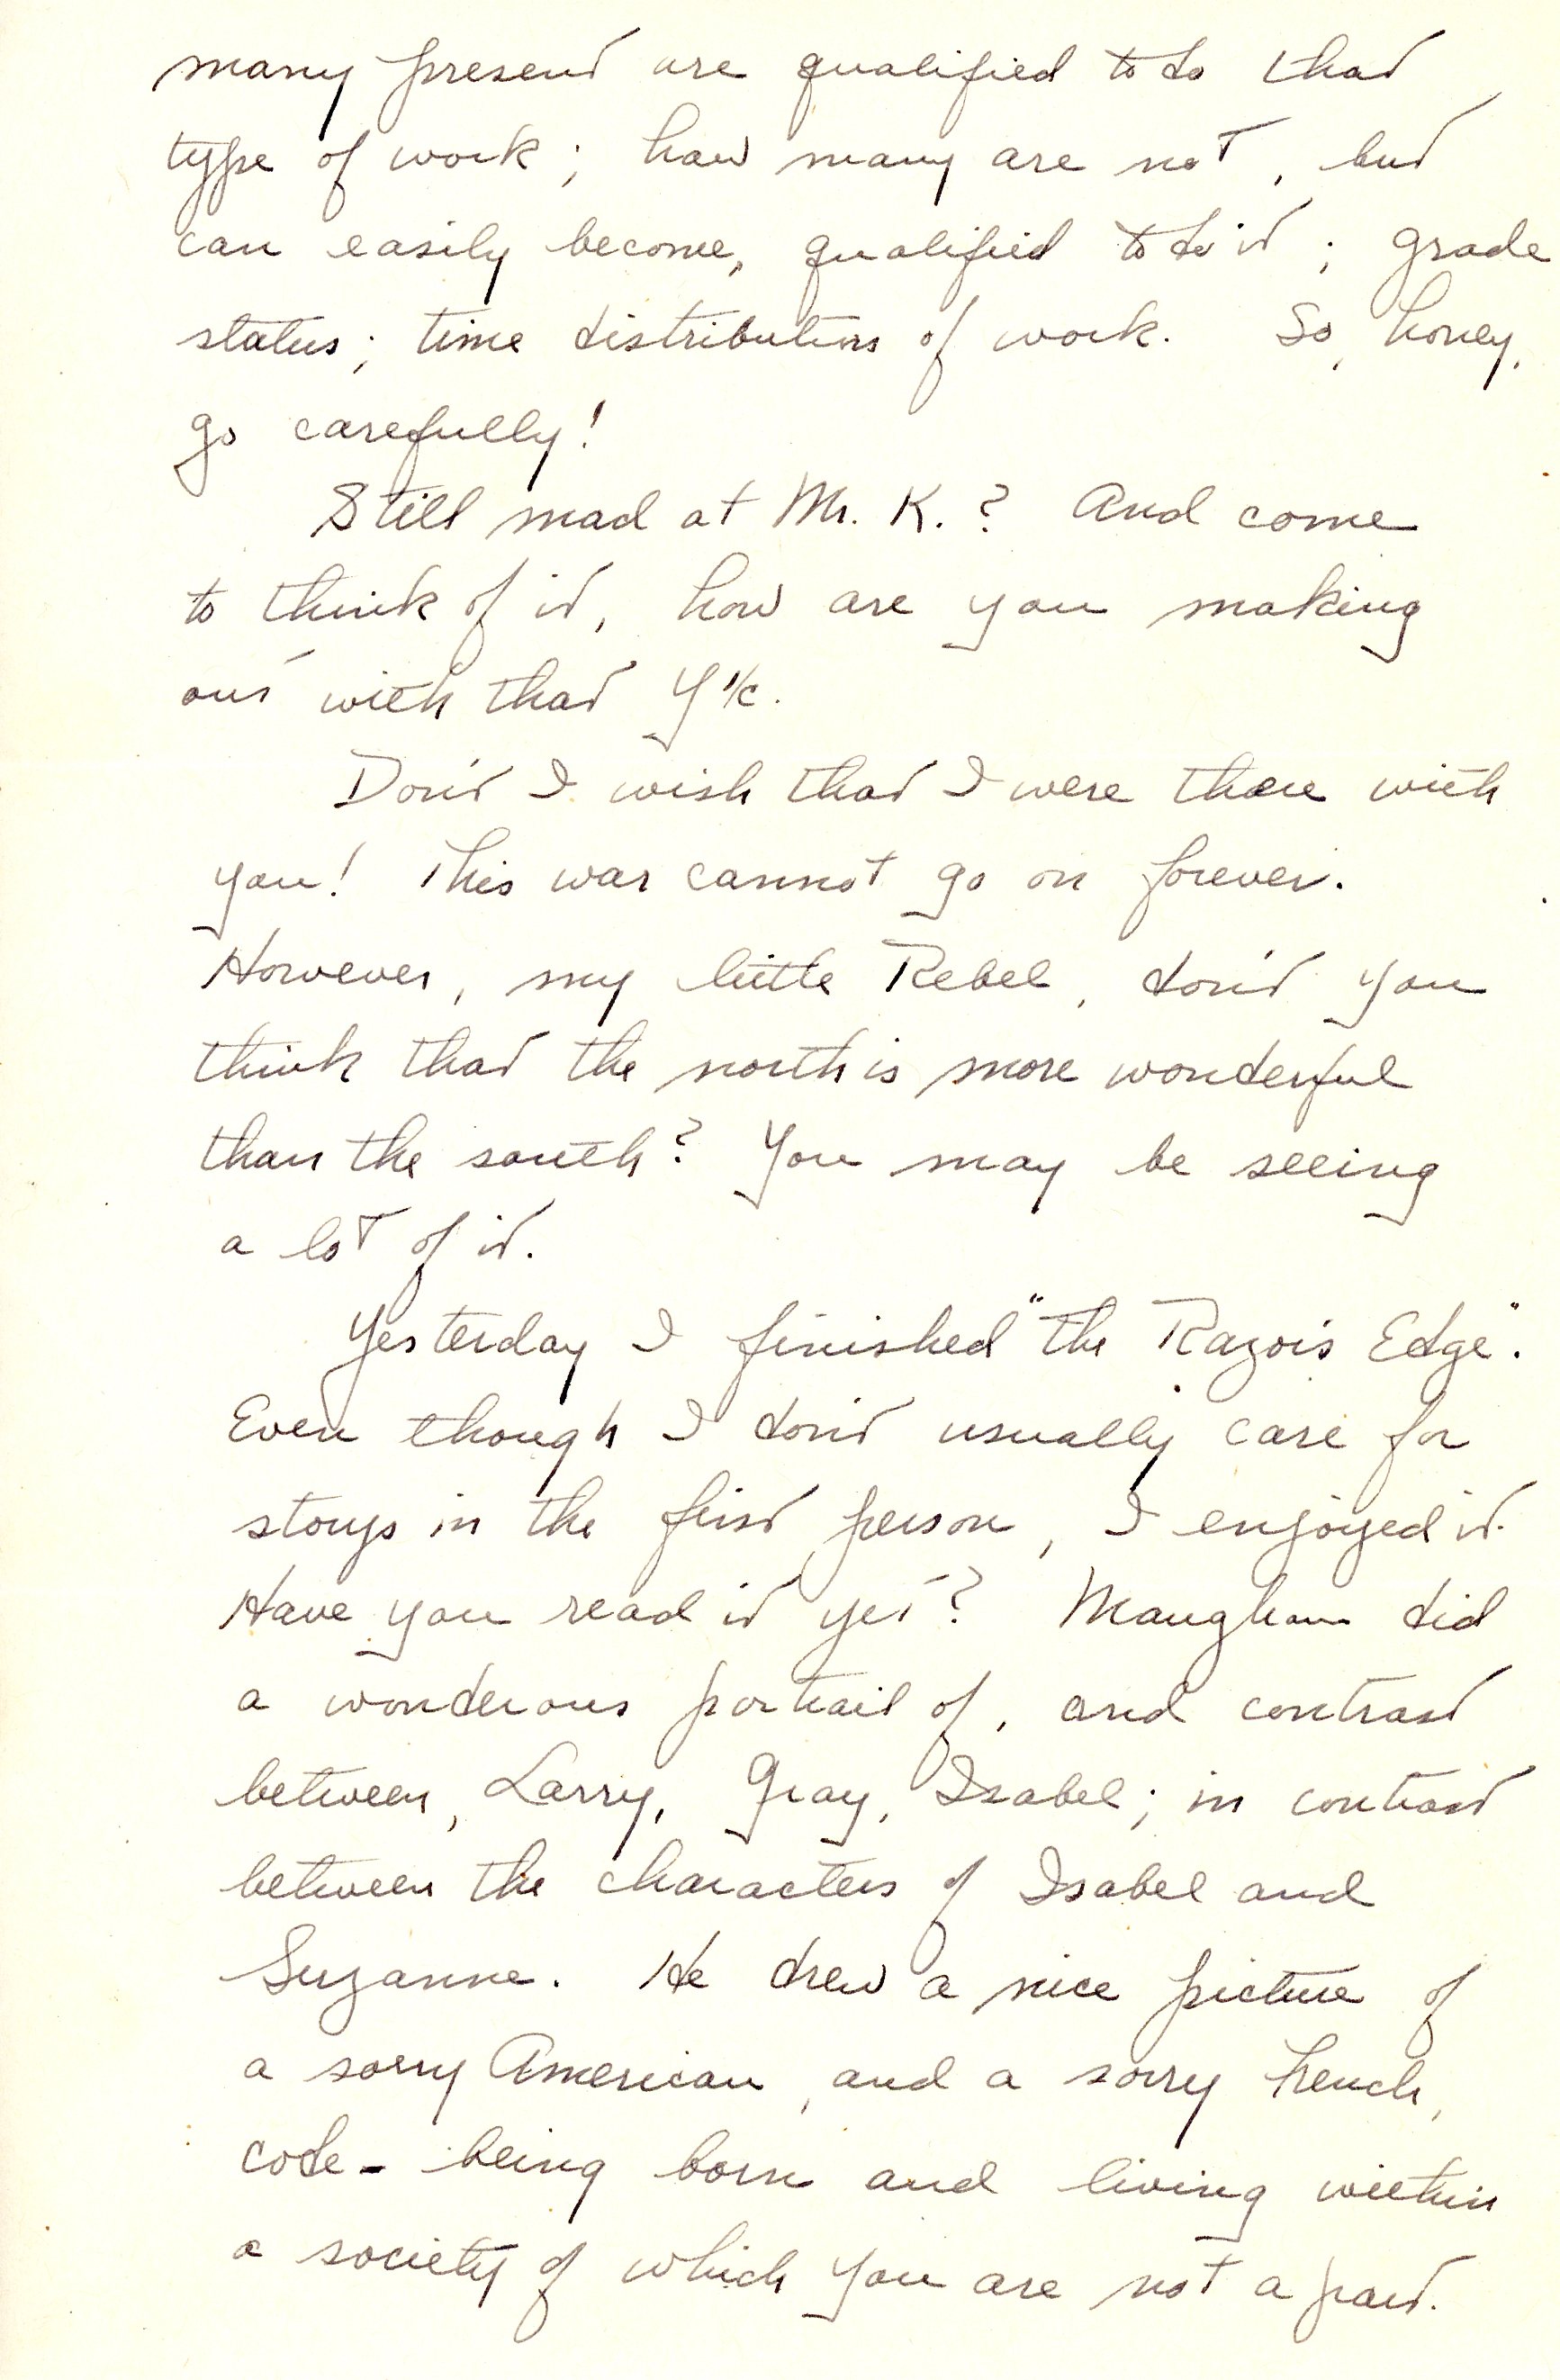 many present are qualified to do that
type of work; how many are not, but
can easily become, qualified to do it; grade
status; time distributions of work. So, honey,
go carefully!
Still mad at Mr. K.? And come
to think of it, how are you making
out with that Y 1/c.
Don't I wish that I were there with
you! This war cannot go on forever.
However, my little Rebel, don't you
think that the north is more wonderful
than the south? You may be seeing
a lot of it.
Yesterday I finished "the Razor's Edge".
Even though I don't usually care for
storys in the first person, I enjoyed it.
Have you read it yet? Maugham did
a wonderous portrait of, and contrast
between, Larry, Gray, Isabel; in contrast
between the characters of Isabel and
Suzanne. He drew a nice picture of
a sorry American, and a sorry French,
code - being born and living within
a society of which you are not a part.